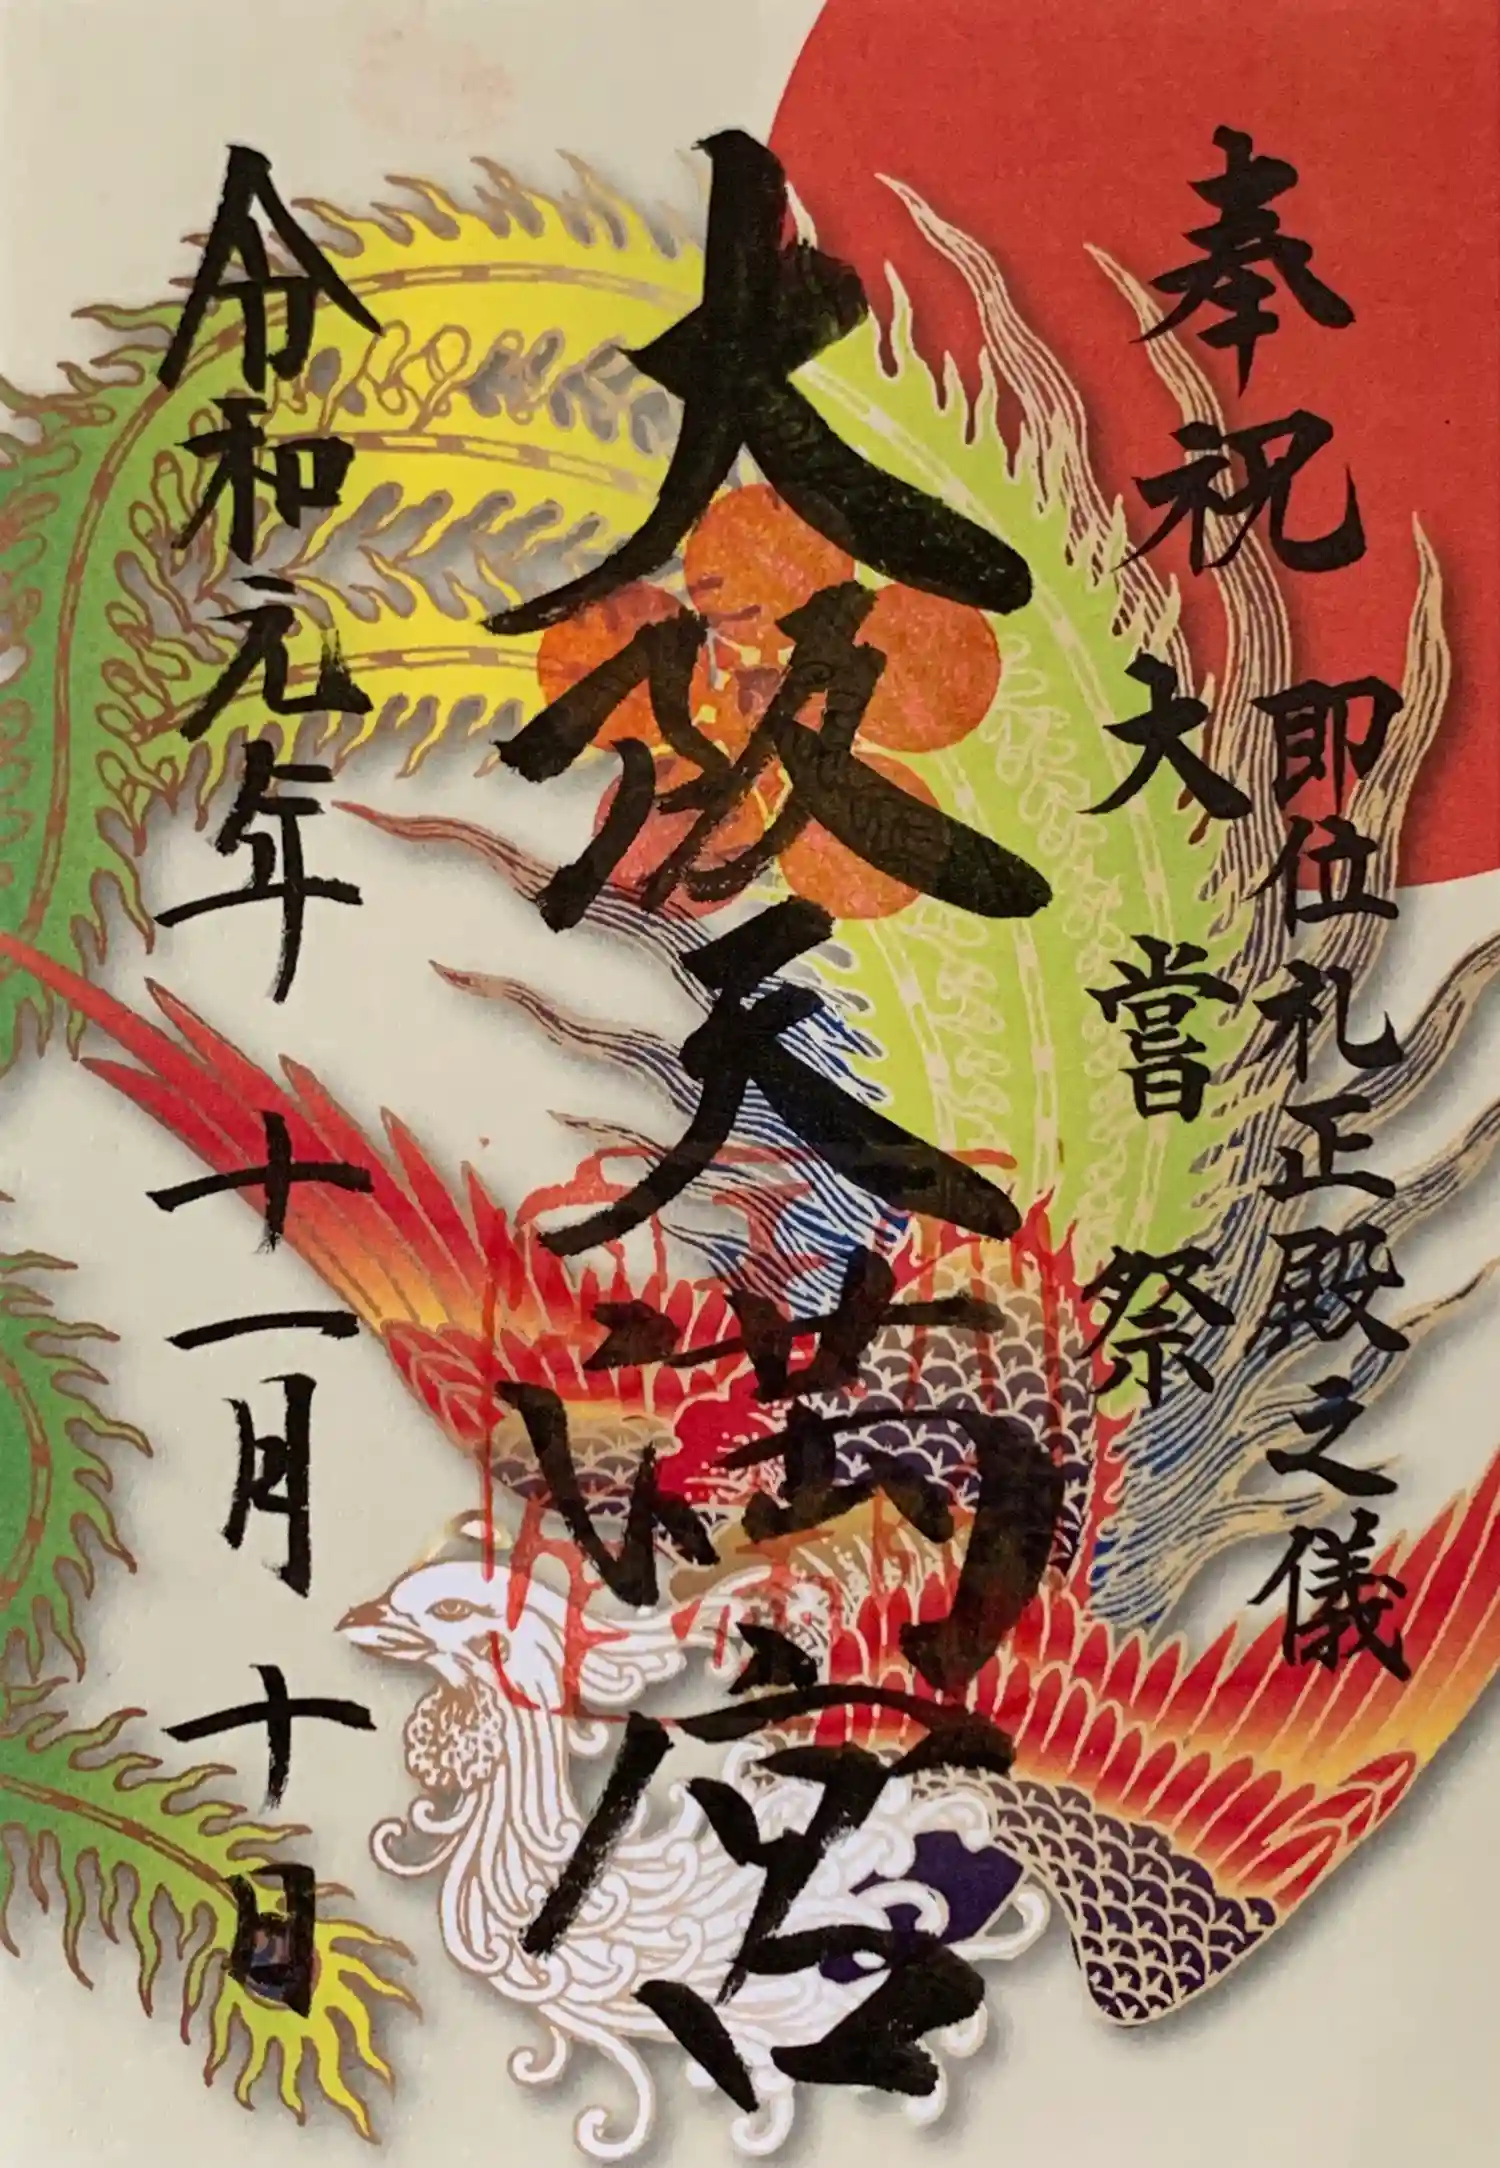 奉祝
即位礼正殿之儀
大嘗祭
大阪天満宮
令和元年十一月十日